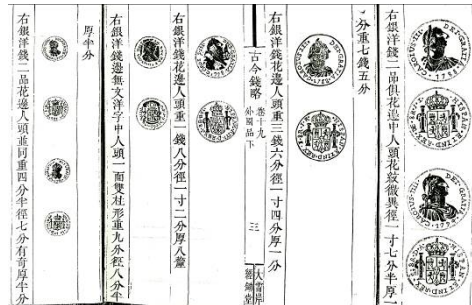 右銀洋錢二品俱花邊中人頭花紋微異徑一寸七分半厚一
分重七錢五分
右銀洋錢花邊人頭重三錢六分徑一寸四分厚一分
古今錢略
卷十九
外國品下
三
右銀洋錢花邊人頭重一錢八分徑一寸二分厚八釐
右銀洋錢邊無文洋字中人頭一面雙柱形重九分徑八分半
厚半分
右銀洋錢二品花邊人頭並同重四分半徑七分有奇厚半分